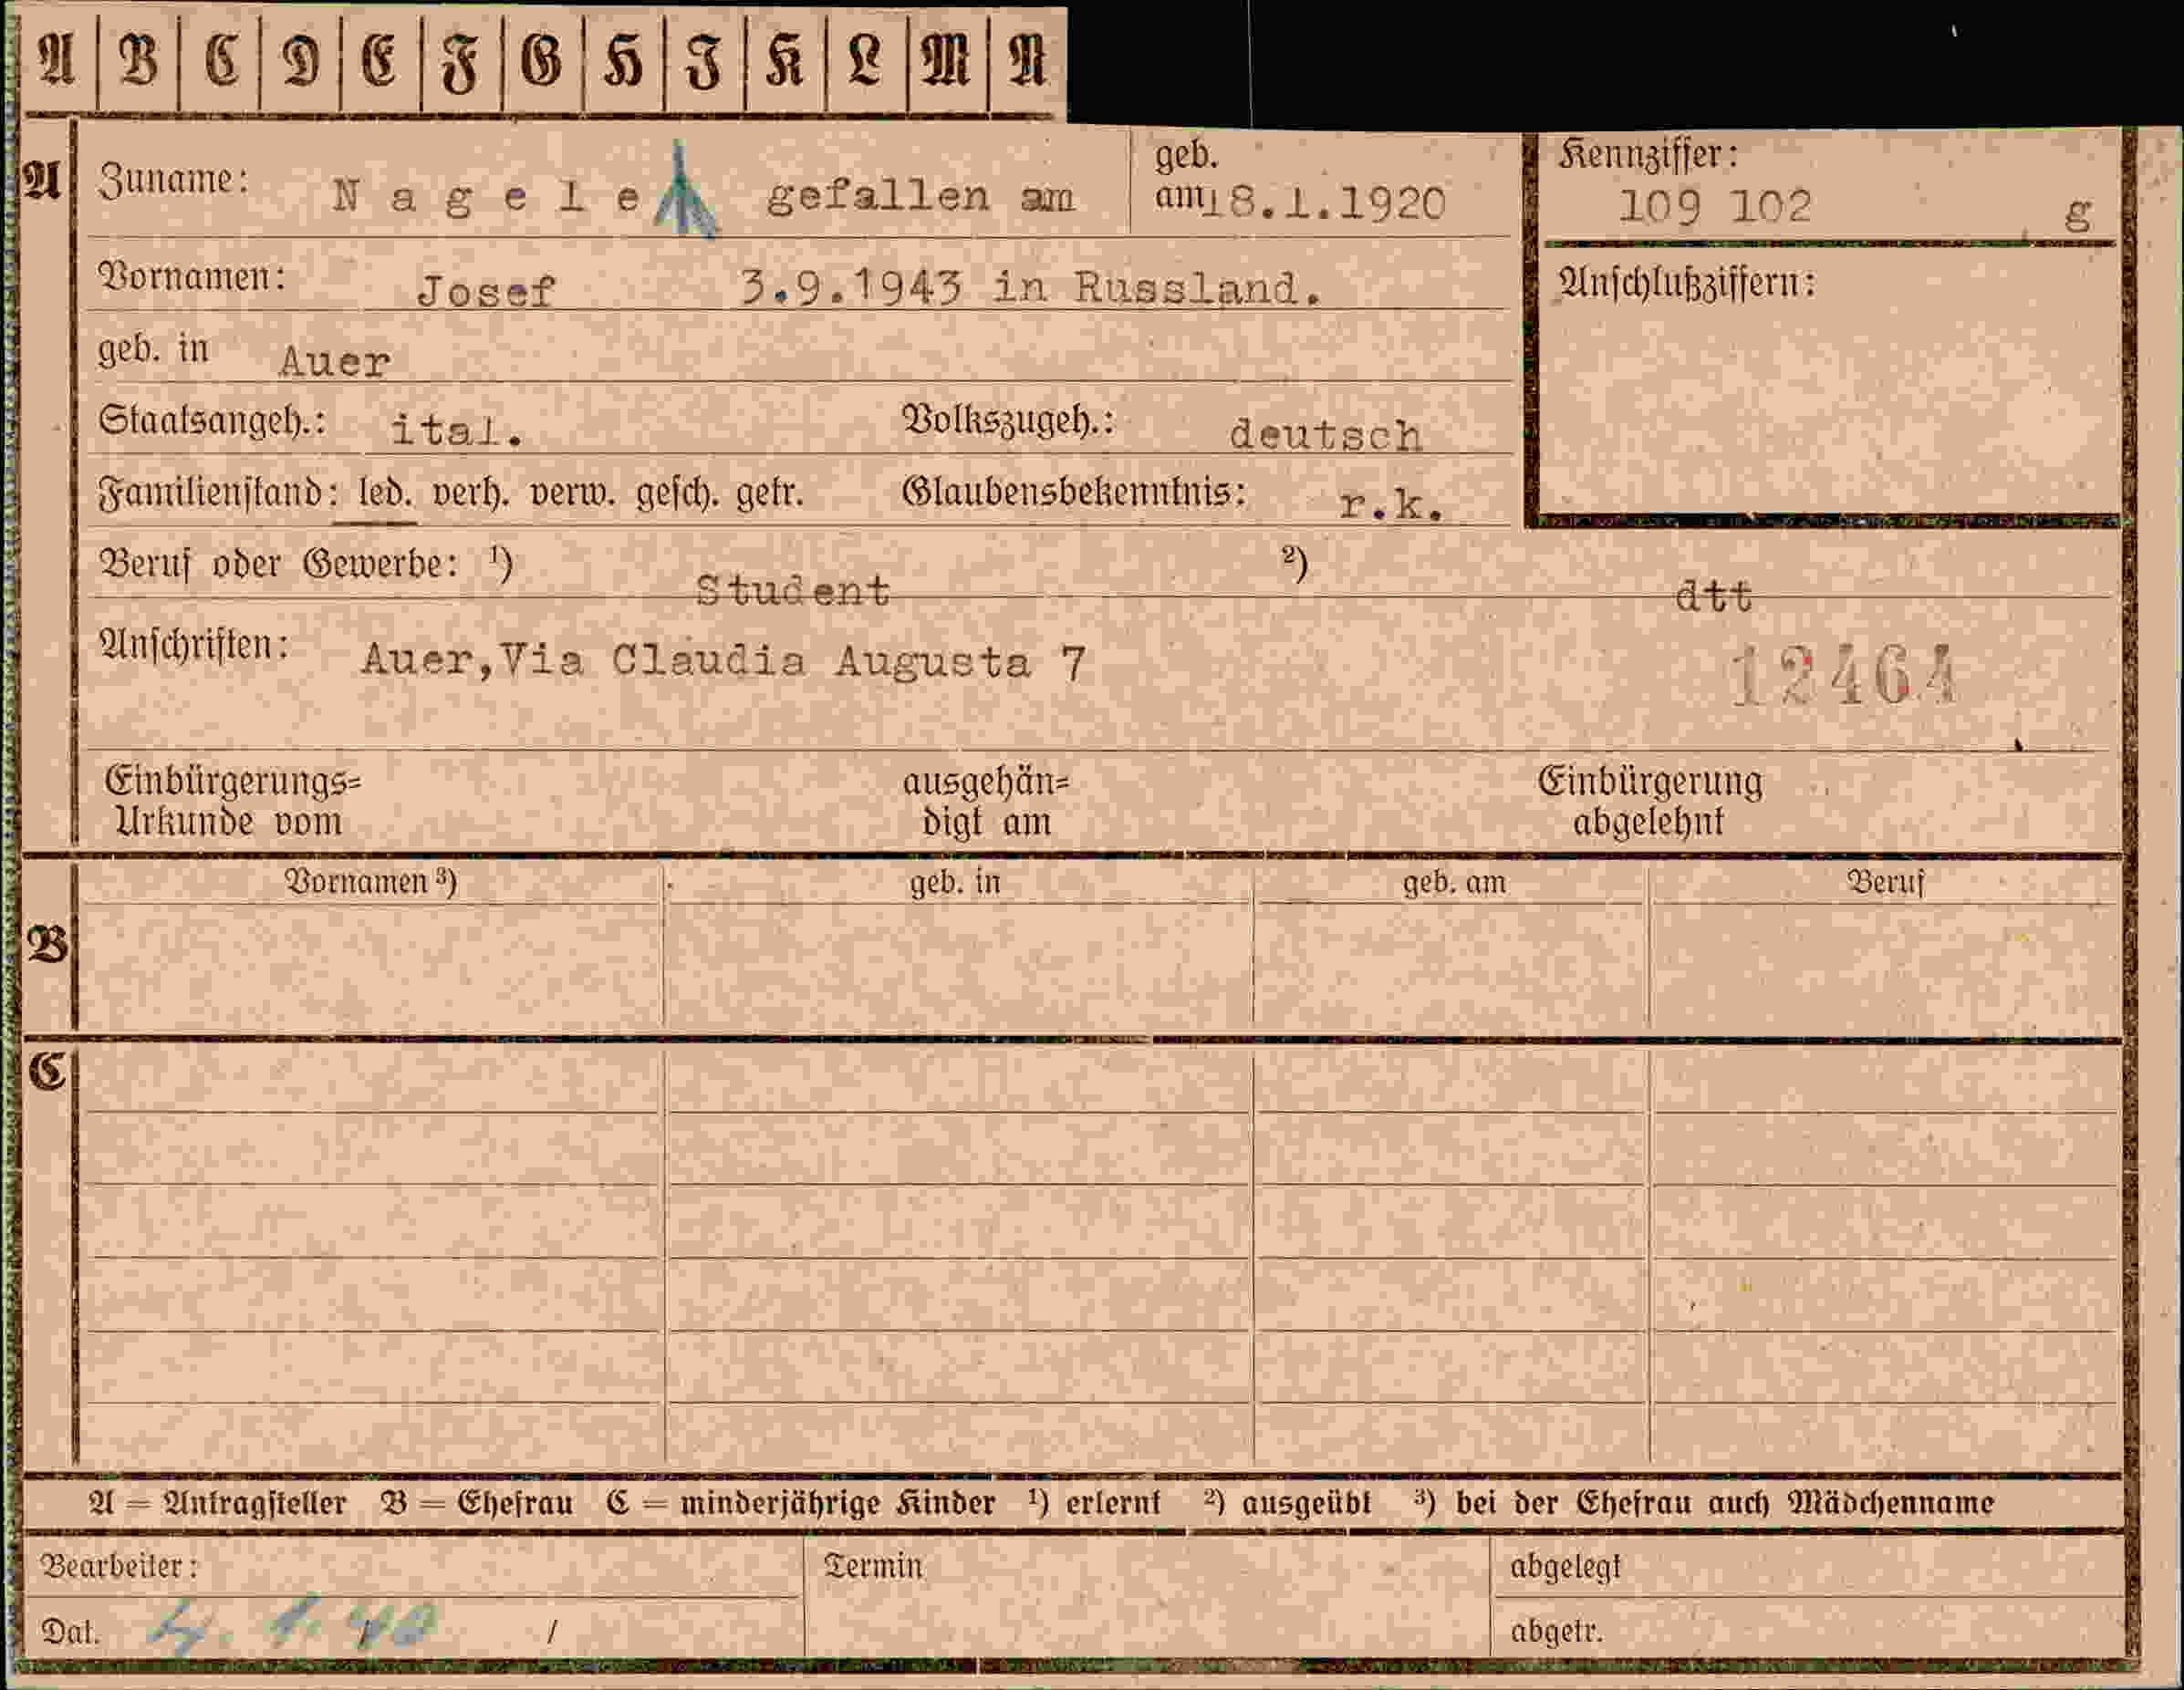 A B C D E F G H I K L M N
A Zuname: Nagele gefallen am geb. am 18.1.1920 Kennziffer: 109 102 g
Vornamen: Josef 3.9.1943 in Russland. Anschlußziffern:
geb. in Auer
Staatsangeh.: ital. Volkszugeh.: deutsch
Familienstand: led. verh. verw. gesch. getr. Glaubensbekenntnis: r.k.
Beruf oder Gewerbe: 1) Student 2) dtt
Anschriften: Auer,Via Claudia Augusta 7 12464
Einbürgerungs= ausgehän= Einbürgerung
Urkunde vom digt am abgelehnt
Vornamen 3) geb. in geb. am Beruf
B
C
A = Antragsteller B = Ehefrau C = minderjährige Kinder 1) erlernt 2) ausgeübt 3) bei der Ehefrau auch Mädchenname
Bearbeiter: Termin abgelegt
Dat. / abgetr.